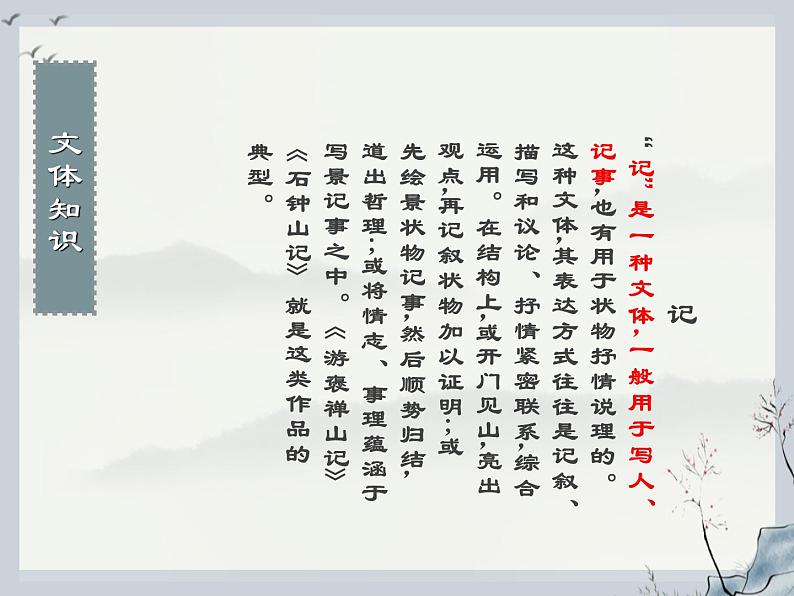 文体知识
记
“记”是一种文体，一般用于写人、
记事，也有用于状物抒情说理的。
这种文体，其表达方式往往是记叙、
描写和议论、抒情紧密联系，综合
运用。在结构上，或开门见山，亮出
观点，再记叙状物加以证明；或
先绘景状物记事，然后顺势归结，
道出哲理；或将情志、事理蕴涵于
写景记事之中。《游褒禅山记》
《石钟山记》就是这类作品的
典型。